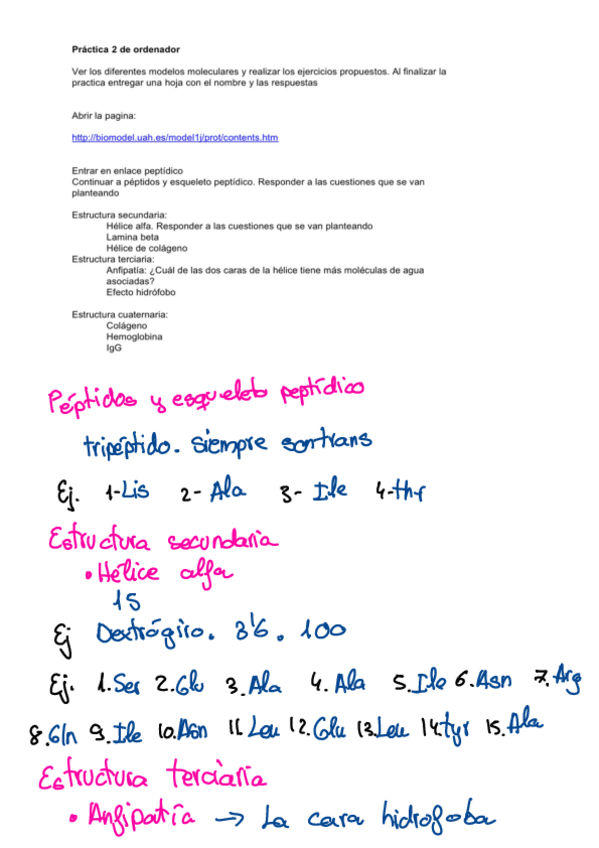 Práctica 2 de ordenador
Ver los diferentes modelos moleculares y realizar los ejercicios propuestos. Al finalizar la
practica entregar una hoja con el nombre y las respuestas
Abrir la pagina:
http://biomodel.uah.es/model1j/prot/contents.htm
Entrar en enlace peptídico
Continuar a péptidos y esqueleto peptídico. Responder a las cuestiones que se van
planteando
Estructura secundaria:
Hélice alfa. Responder a las cuestiones que se van planteando
Lamina beta
Hélice de colágeno
Estructura terciaria:
Anfipatía: ¿Cuál de las dos caras de la hélice tiene más moléculas de agua
asociadas?
Efecto hidrófobo
Estructura cuaternaria:
Colágeno
Hemoglobina
IgG
Péptidos y esqueleto peptídico
tripéptido. Siempre son trans
Ej. 1-Lis 2-Ala 3-Ile 4-thr
Estructura secundaria
• Hélice alfa
15
Ej Dextrógiro. 3'6. 100
Ej. 1.Ser 2.Glu 3.Ala 4.Ala 5.Ile 6.Asn 7.Arg
8.Gln 9.Ile 10.Asn 11.Leu 12.Glu 13.Leu 14.tyr 15.Ala
Estructura terciaria
• Anfipatía → La cara hidrofoba